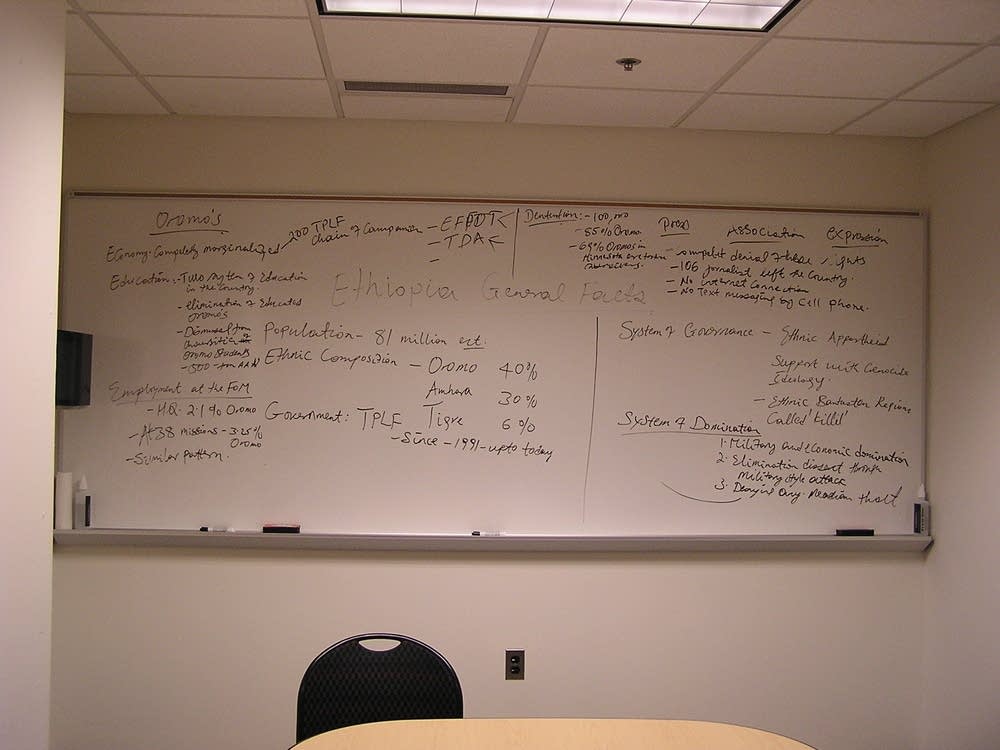 Oromo's
Economy: Completely marginalized
200 TPLF
chain of Companies
- EFFDT
- TDA
-
Education: - Two system of Education
in the country.
- elimination of Educated
oromo's
- Dismissal from
universities of
oromo students
- 300 from AAU
Employment at the FOM
- H.Q. 2.1% Oromo
- At 38 missions - 3.25%
Oromo
- Similar pattern.
Detention: - 100,000
- 85% Oromo
- 69% Oromos in
Minnesota
Press
Association
Expression
- Complet denial of these rights
- 106 journalist left the country.
- No Internet Connection
- No Text messaging by Cell phone.
Ethiopia General Facts
Population - 81 million est.
Ethnic Composition - Oromo 40%
Amhara 30%
Tigre 6%
Government: TPLF
- Since - 1991 - upto today
System of Governance - Ethnic Appartheid
Support with Genocide
Ideology.
- Ethnic Bantustan Regions
Called 'killil'
System of Domination
1. Military and economic domination
2. Elimination dissent through
Military style attack
3. Denying any